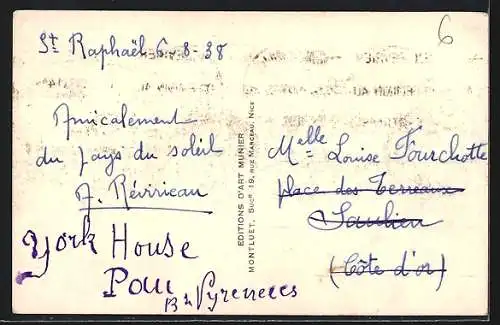 6
St Raphaël 6-8-38
Amicalement
du pays du soleil
A. Révirieau
York House
Pau
Bs Pyrenees
EDITIONS D'ART MUNIER
MONTLUET, Succr 19, RUE MARCEAU, NICE
Melle Louise Fourchotte
place des Terreaux
Saulieu
(Côte d'or)